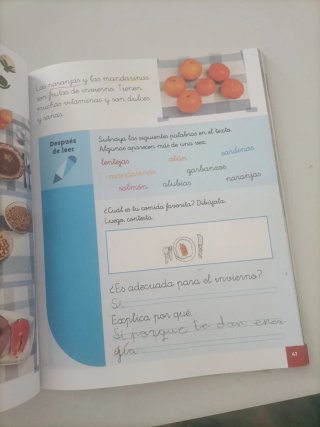 Las naranjas y las mandarinas
son frutas de invierno. Tienen
muchas vitaminas y son dulces
y sanas.
Después
de leer
Subraya las siguientes palabras en el texto.
Algunas aparecen más de una vez.
lentejas atún sardinas
mandarinas garbanzos
salmón alubias naranjas
¿Cuál es tu comida favorita? Dibújala.
Luego, contesta.
¿Es adecuada para el invierno?
Si
Explica por qué.
Si porque te dan ener-
gía
41